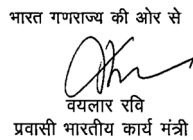 भारत गणराज्य की ओर से
वयलार रवि
प्रवासी भारतीय कार्य मंत्री